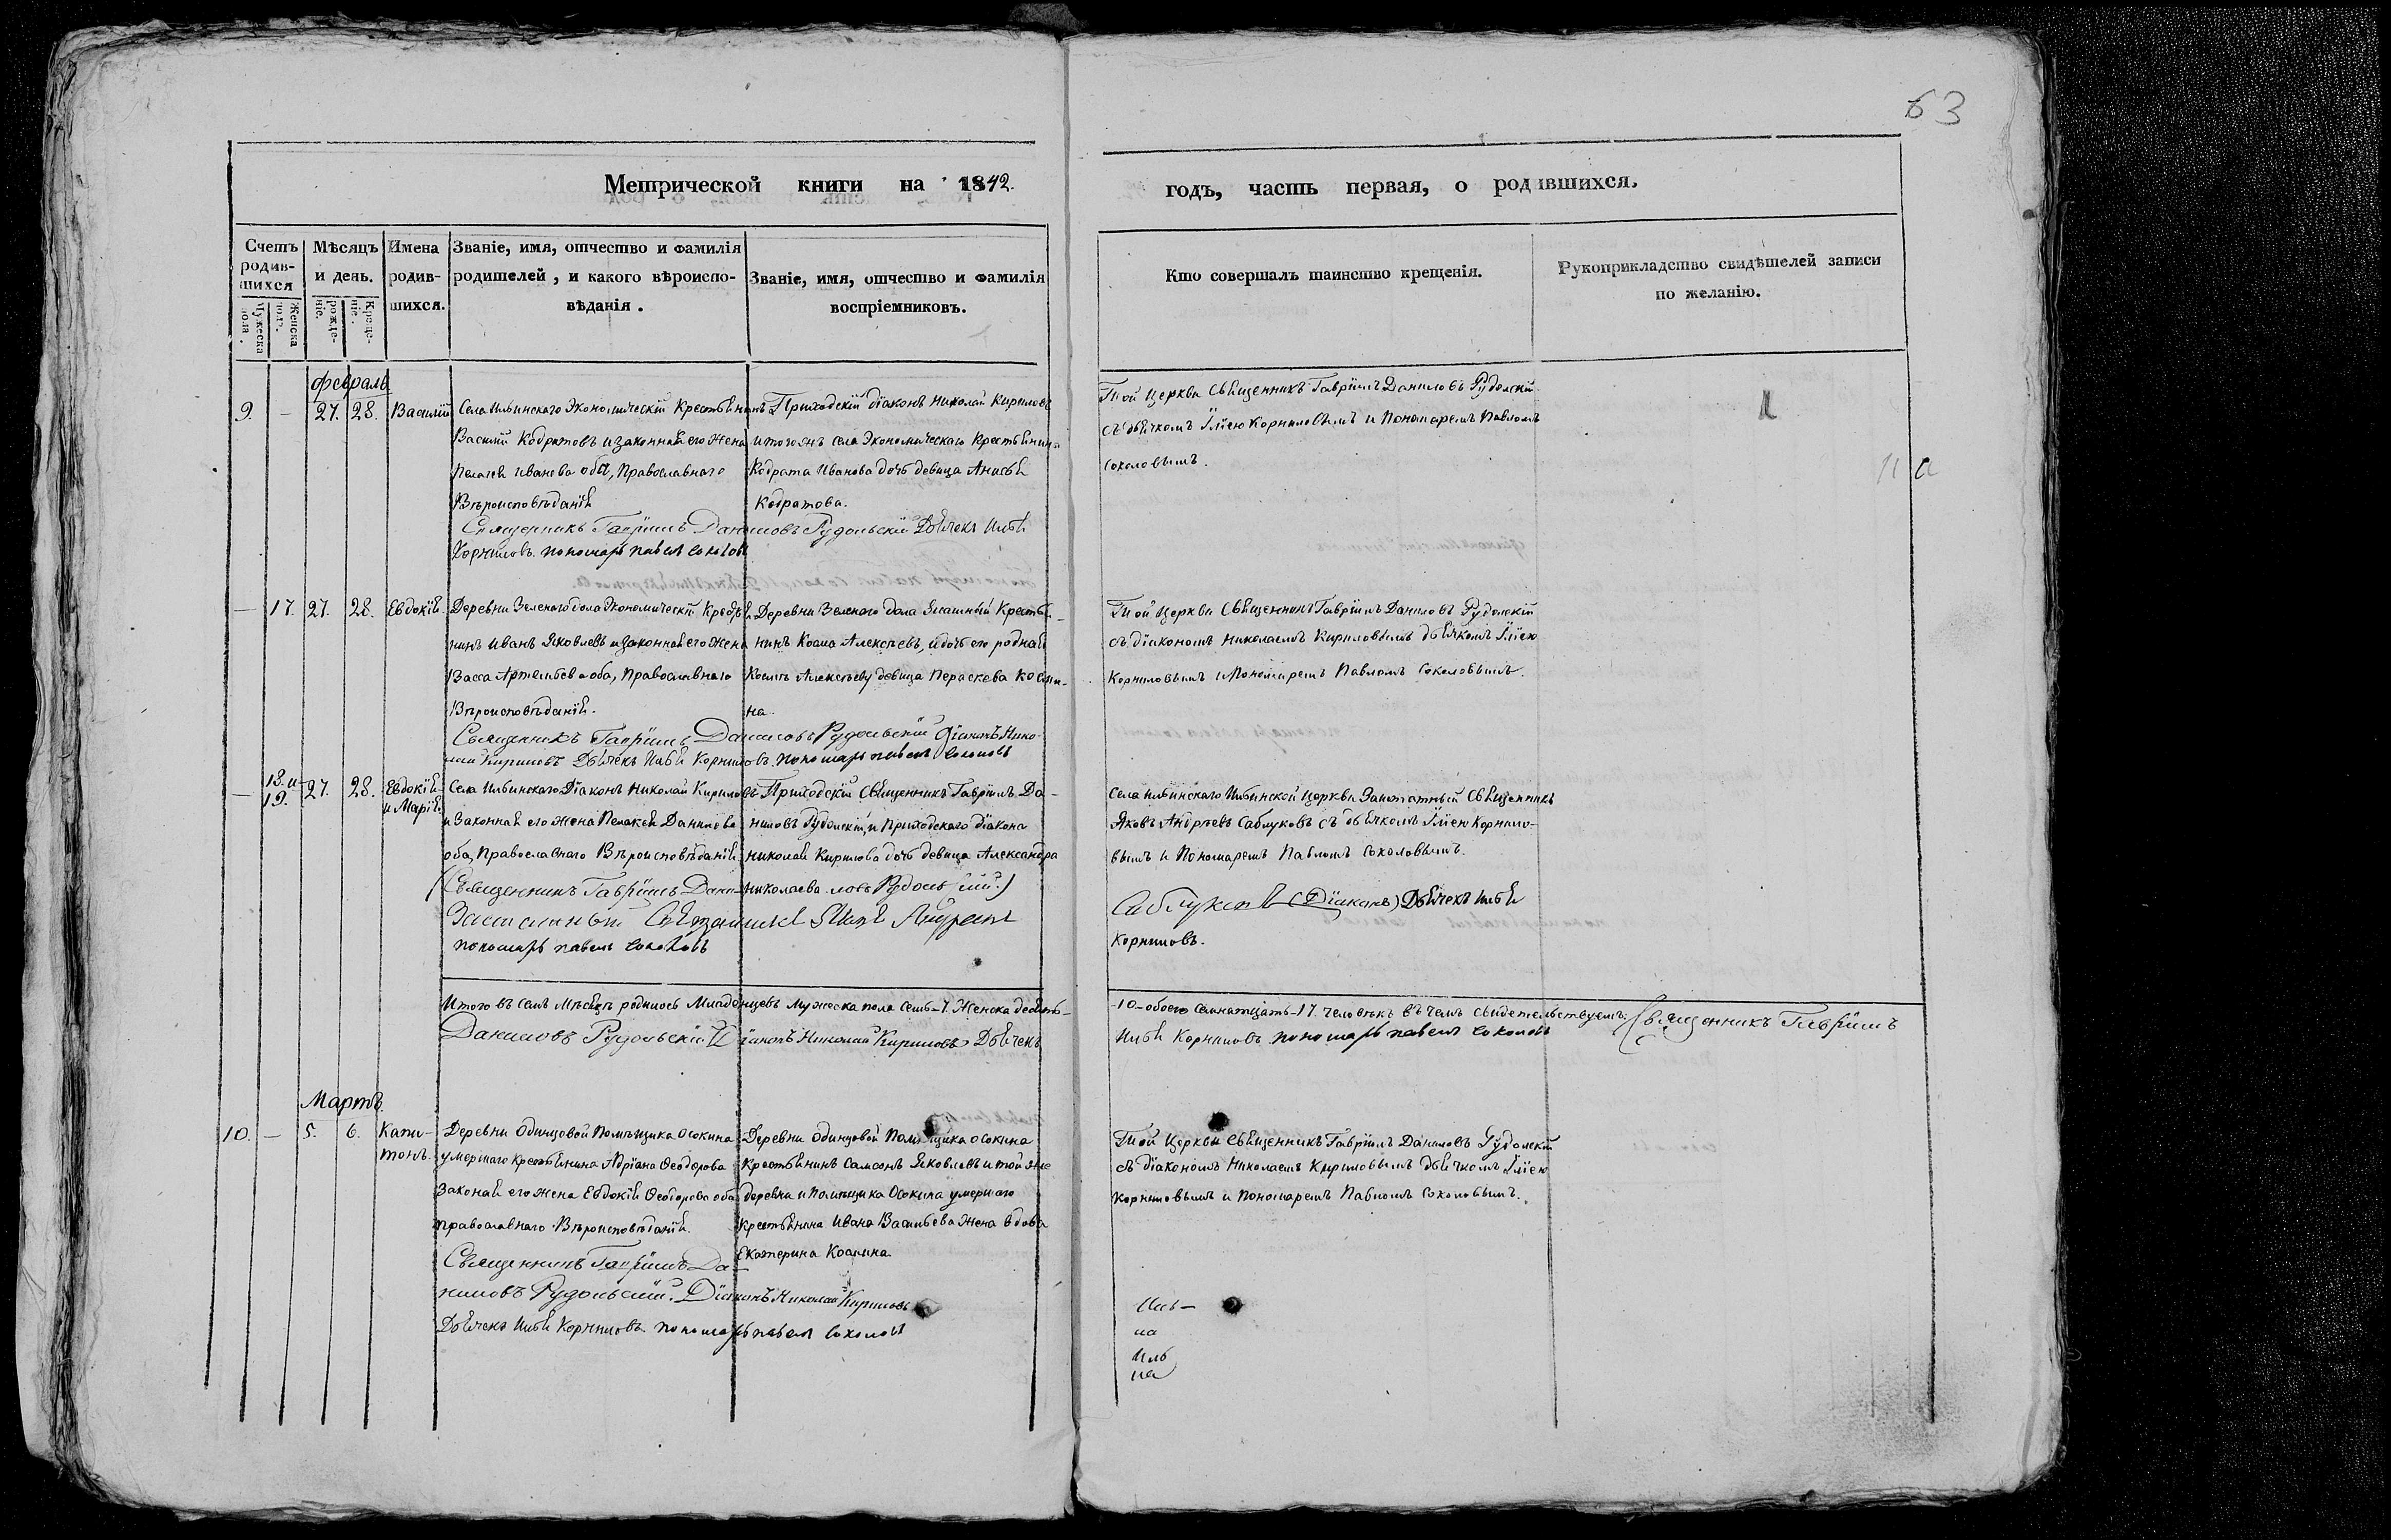 63
Метрической книги на 1842.
годъ, часть первая, о родившихся.
Счетъ родившихся
Мужеска пола.
Женска пола.
Мѣсяцъ и день.
рожденіе.
Крещеніе.
Имена родившихся.
Званіе, имя, отчество и фамилія
родителей, и какого вѣроиспо-
вѣданія.
Званіе, имя, отчество и фамилія
воспріемниковъ.
Кто совершалъ таинство крещенія.
Рукоприкладство свидѣтелей записи
по желанію.
февраль
9. — 27. 28. Василій
Села Ильинскаго Экономическій Крестьянинъ
Василій Кодратовъ и законная его жена
Пелагея Иванова оба, Православнаго
Вѣроисповѣданія
Приходскій діаконъ Николай Кириловъ
и того жъ села Экономическаго Крестьянина
Кодрата Иванова дочь девица Анисья
Кодратова.
Той Церкви Священникъ Гавріилъ Даниловъ Рудольскій
съ дьячкомъ Іліею Корниловымъ и Пономаремъ Павломъ
Соколовымъ.
Священникъ Гавріилъ Даниловъ Рудольскій Дьячекъ Илья
Корниловъ. пономарь павелъ соколовъ
— 17. 27. 28. Евдокія.
Деревни Зеленаго дола Экономическій Крестья-
нинъ Иванъ Яковлевъ и законная его жена
Васса Артемьева оба, Православнаго
Вѣроисповѣданія.
Деревни Зеленаго дола Ясашный Крестья-
нинъ Косма Алексѣевъ, и дочь его родная
Космы Алексѣева девица Параскева Косми-
на.
Той Церкви Священникъ Гавріилъ Даниловъ Рудольскій
съ діакономъ Николаемъ Кириловымъ дьячкомъ Іліею
Корниловымъ и Пономаремъ Павломъ Соколовымъ.
Священникъ Гавріилъ Даниловъ Рудольскій Діаконъ Нико-
лай Кириловъ Дьячекъ Илья Корниловъ. пономарь павелъ соколовъ
— 18. и 19. 27. 28. Евдокія и Марія.
Села Ильинскаго Діаконъ Николай Кириловъ
и Законная его жена Пелагея Данилова
оба, Православнаго Вѣроисповѣданія.
Приходскій Священникъ Гавріилъ Да-
ниловъ Рудольскій, и Приходскаго діакона
Николая Кирилова дочь девица Александра
Николаева.
Села Ильинскаго Ильинской Церкви Заштатный Священникъ
Яковъ Андреевъ Саблуковъ съ дьячкомъ Іліею Корнило-
вымъ и Пономаремъ Павломъ Соколовымъ.
Священникъ Гавріилъ Даниловъ Рудольскій.
Заштатный Священникъ Яковъ Андреевъ
Саблуковъ Діаконъ Дьячекъ Илья
Корниловъ.
пономарь павелъ соколовъ
Итого въ семъ мѣсяцѣ родилось Младенцевъ мужеска пола семь-7. Женска десять-
-10- обоего семнатцать-17. человѣкъ въ чемъ свидетельствуемъ: Священникъ Гавріилъ
Даниловъ Рудольскій Діаконъ Николай Кириловъ Дьячекъ
Илья Корниловъ пономарь павелъ соколовъ
Мартъ.
10. — 5. 6. Капи-
тонъ.
Деревни Одинцовой Помѣщика Осокина
умершаго Крестьянина Адріана Феодорова
Законая его жена Евдокія Феодорова оба
православнаго Вѣроисповѣданія.
Деревни Одинцовой Помѣщика Осокина
Крестьянинъ Самсонъ Яковлевъ и той же
деревни и Помѣщика Осокина умершаго
Крестьянина Ивана Васильева жена вдова
Екатерина Космина.
Той Церкви Священникъ Гавріилъ Даниловъ Рудольскій
съ діакономъ Николаемъ Кириловымъ дьячкомъ Іліею
Корниловымъ и Пономаремъ Павломъ Соколовымъ.
Священникъ Гавріилъ Да-
ниловъ Рудольскій. Діаконъ Николай Кириловъ
Дьячекъ Илья Корниловъ. пономарь павелъ соколовъ